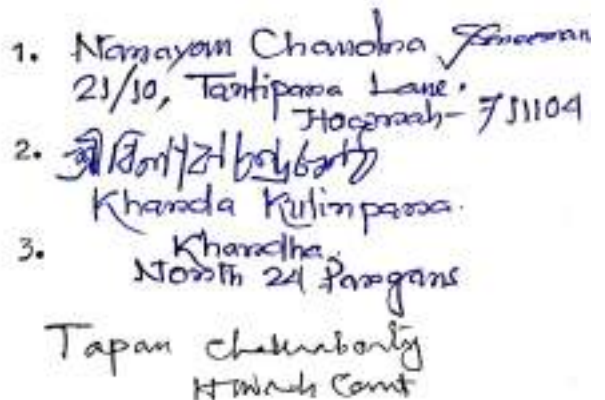 1. Narayan Chandra
21/10, Tantipara Lane.
Howrah- 711104
2. শ্রী
Kharda Kulinpara.
3. Khardha.
North 24 Pargans
Tapan Chakraborty
Howrah Court